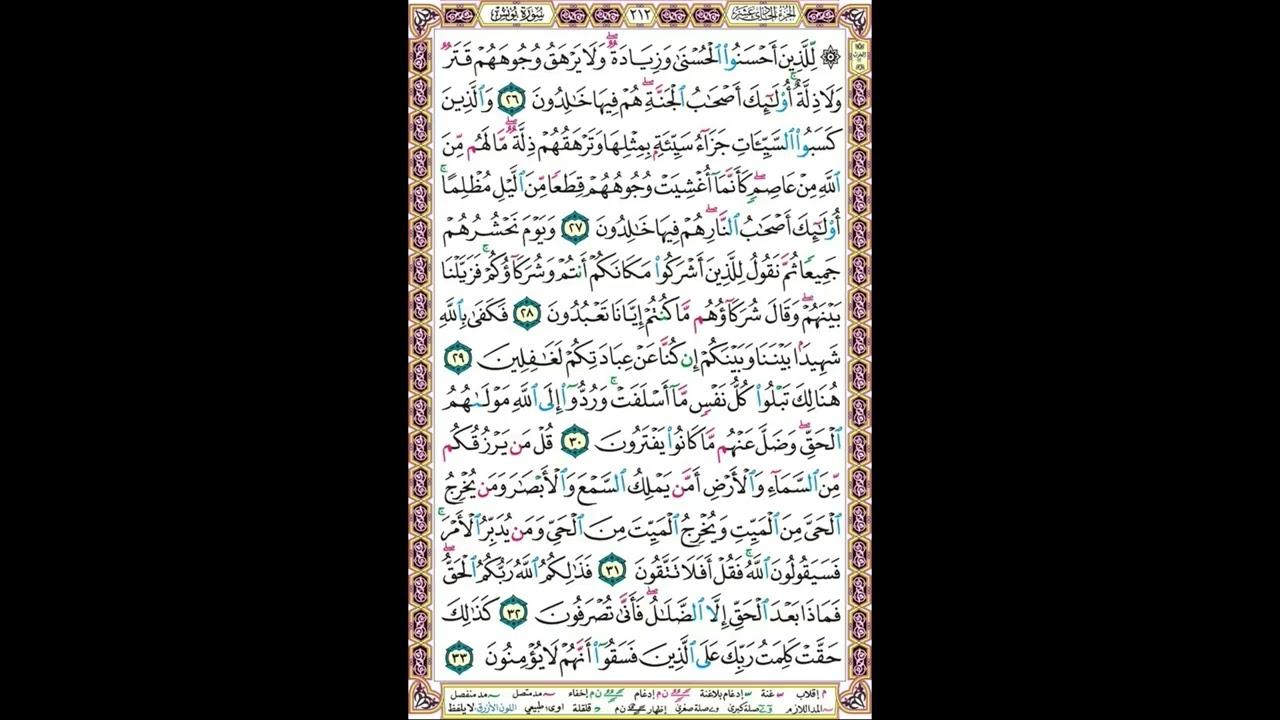 سُورَةُ يُونُسَ ٢١٢ الجُزْءُ الحَادِي عَشَرَ
۞ لِّلَّذِينَ أَحۡسَنُواْ ٱلۡحُسۡنَىٰ وَزِيَادَةٞۖ وَلَا يَرۡهَقُ وُجُوهَهُمۡ قَتَرٞ
وَلَا ذِلَّةٌۚ أُوْلَٰٓئِكَ أَصۡحَٰبُ ٱلۡجَنَّةِۖ هُمۡ فِيهَا خَٰلِدُونَ ٢٦ وَٱلَّذِينَ
كَسَبُواْ ٱلسَّيِّـَٔاتِ جَزَآءُ سَيِّئَةِۭ بِمِثۡلِهَا وَتَرۡهَقُهُمۡ ذِلَّةٞۖ مَّا لَهُم مِّنَ
ٱللَّهِ مِنۡ عَاصِمٖۖ كَأَنَّمَآ أُغۡشِيَتۡ وُجُوهُهُمۡ قِطَعٗا مِّنَ ٱلَّيۡلِ مُظۡلِمًاۚ
أُوْلَٰٓئِكَ أَصۡحَٰبُ ٱلنَّارِۖ هُمۡ فِيهَا خَٰلِدُونَ ٢٧ وَيَوۡمَ نَحۡشُرُهُمۡ
جَمِيعٗا ثُمَّ نَقُولُ لِلَّذِينَ أَشۡرَكُواْ مَكَانَكُمۡ أَنتُمۡ وَشُرَكَآؤُكُمۡۚ فَزَيَّلۡنَا
بَيۡنَهُمۡۖ وَقَالَ شُرَكَآؤُهُم مَّا كُنتُمۡ إِيَّانَا تَعۡبُدُونَ ٢٨ فَكَفَىٰ بِٱللَّهِ
شَهِيدَۢا بَيۡنَنَا وَبَيۡنَكُمۡ إِن كُنَّا عَنۡ عِبَادَتِكُمۡ لَغَٰفِلِينَ ٢٩
هُنَالِكَ تَبۡلُواْ كُلُّ نَفۡسٖ مَّآ أَسۡلَفَتۡۚ وَرُدُّوٓاْ إِلَى ٱللَّهِ مَوۡلَىٰهُمُ
ٱلۡحَقِّۖ وَضَلَّ عَنۡهُم مَّا كَانُواْ يَفۡتَرُونَ ٣٠ قُلۡ مَن يَرۡزُقُكُم
مِّنَ ٱلسَّمَآءِ وَٱلۡأَرۡضِ أَمَّن يَمۡلِكُ ٱلسَّمۡعَ وَٱلۡأَبۡصَٰرَ وَمَن يُخۡرِجُ
ٱلۡحَيَّ مِنَ ٱلۡمَيِّتِ وَيُخۡرِجُ ٱلۡمَيِّتَ مِنَ ٱلۡحَيِّ وَمَن يُدَبِّرُ ٱلۡأَمۡرَۚ
فَسَيَقُولُونَ ٱللَّهُۚ فَقُلۡ أَفَلَا تَتَّقُونَ ٣١ فَذَٰلِكُمُ ٱللَّهُ رَبُّكُمُ ٱلۡحَقُّۖ
فَمَاذَا بَعۡدَ ٱلۡحَقِّ إِلَّا ٱلضَّلَٰلُۖ فَأَنَّىٰ تُصۡرَفُونَ ٣٢ كَذَٰلِكَ
حَقَّتۡ كَلِمَتُ رَبِّكَ عَلَى ٱلَّذِينَ فَسَقُوٓاْ أَنَّهُمۡ لَا يُؤۡمِنُونَ ٣٣
م إقلاب غنة إدغام بلاغنة ن م إدغام ن م إخفاء مد متصل مد منفصل
المد اللازم صلة كبرى صلة صغرى إظهار ن م قلقلة اوى: طبيعي اللون الأزرق: لا يلفظ